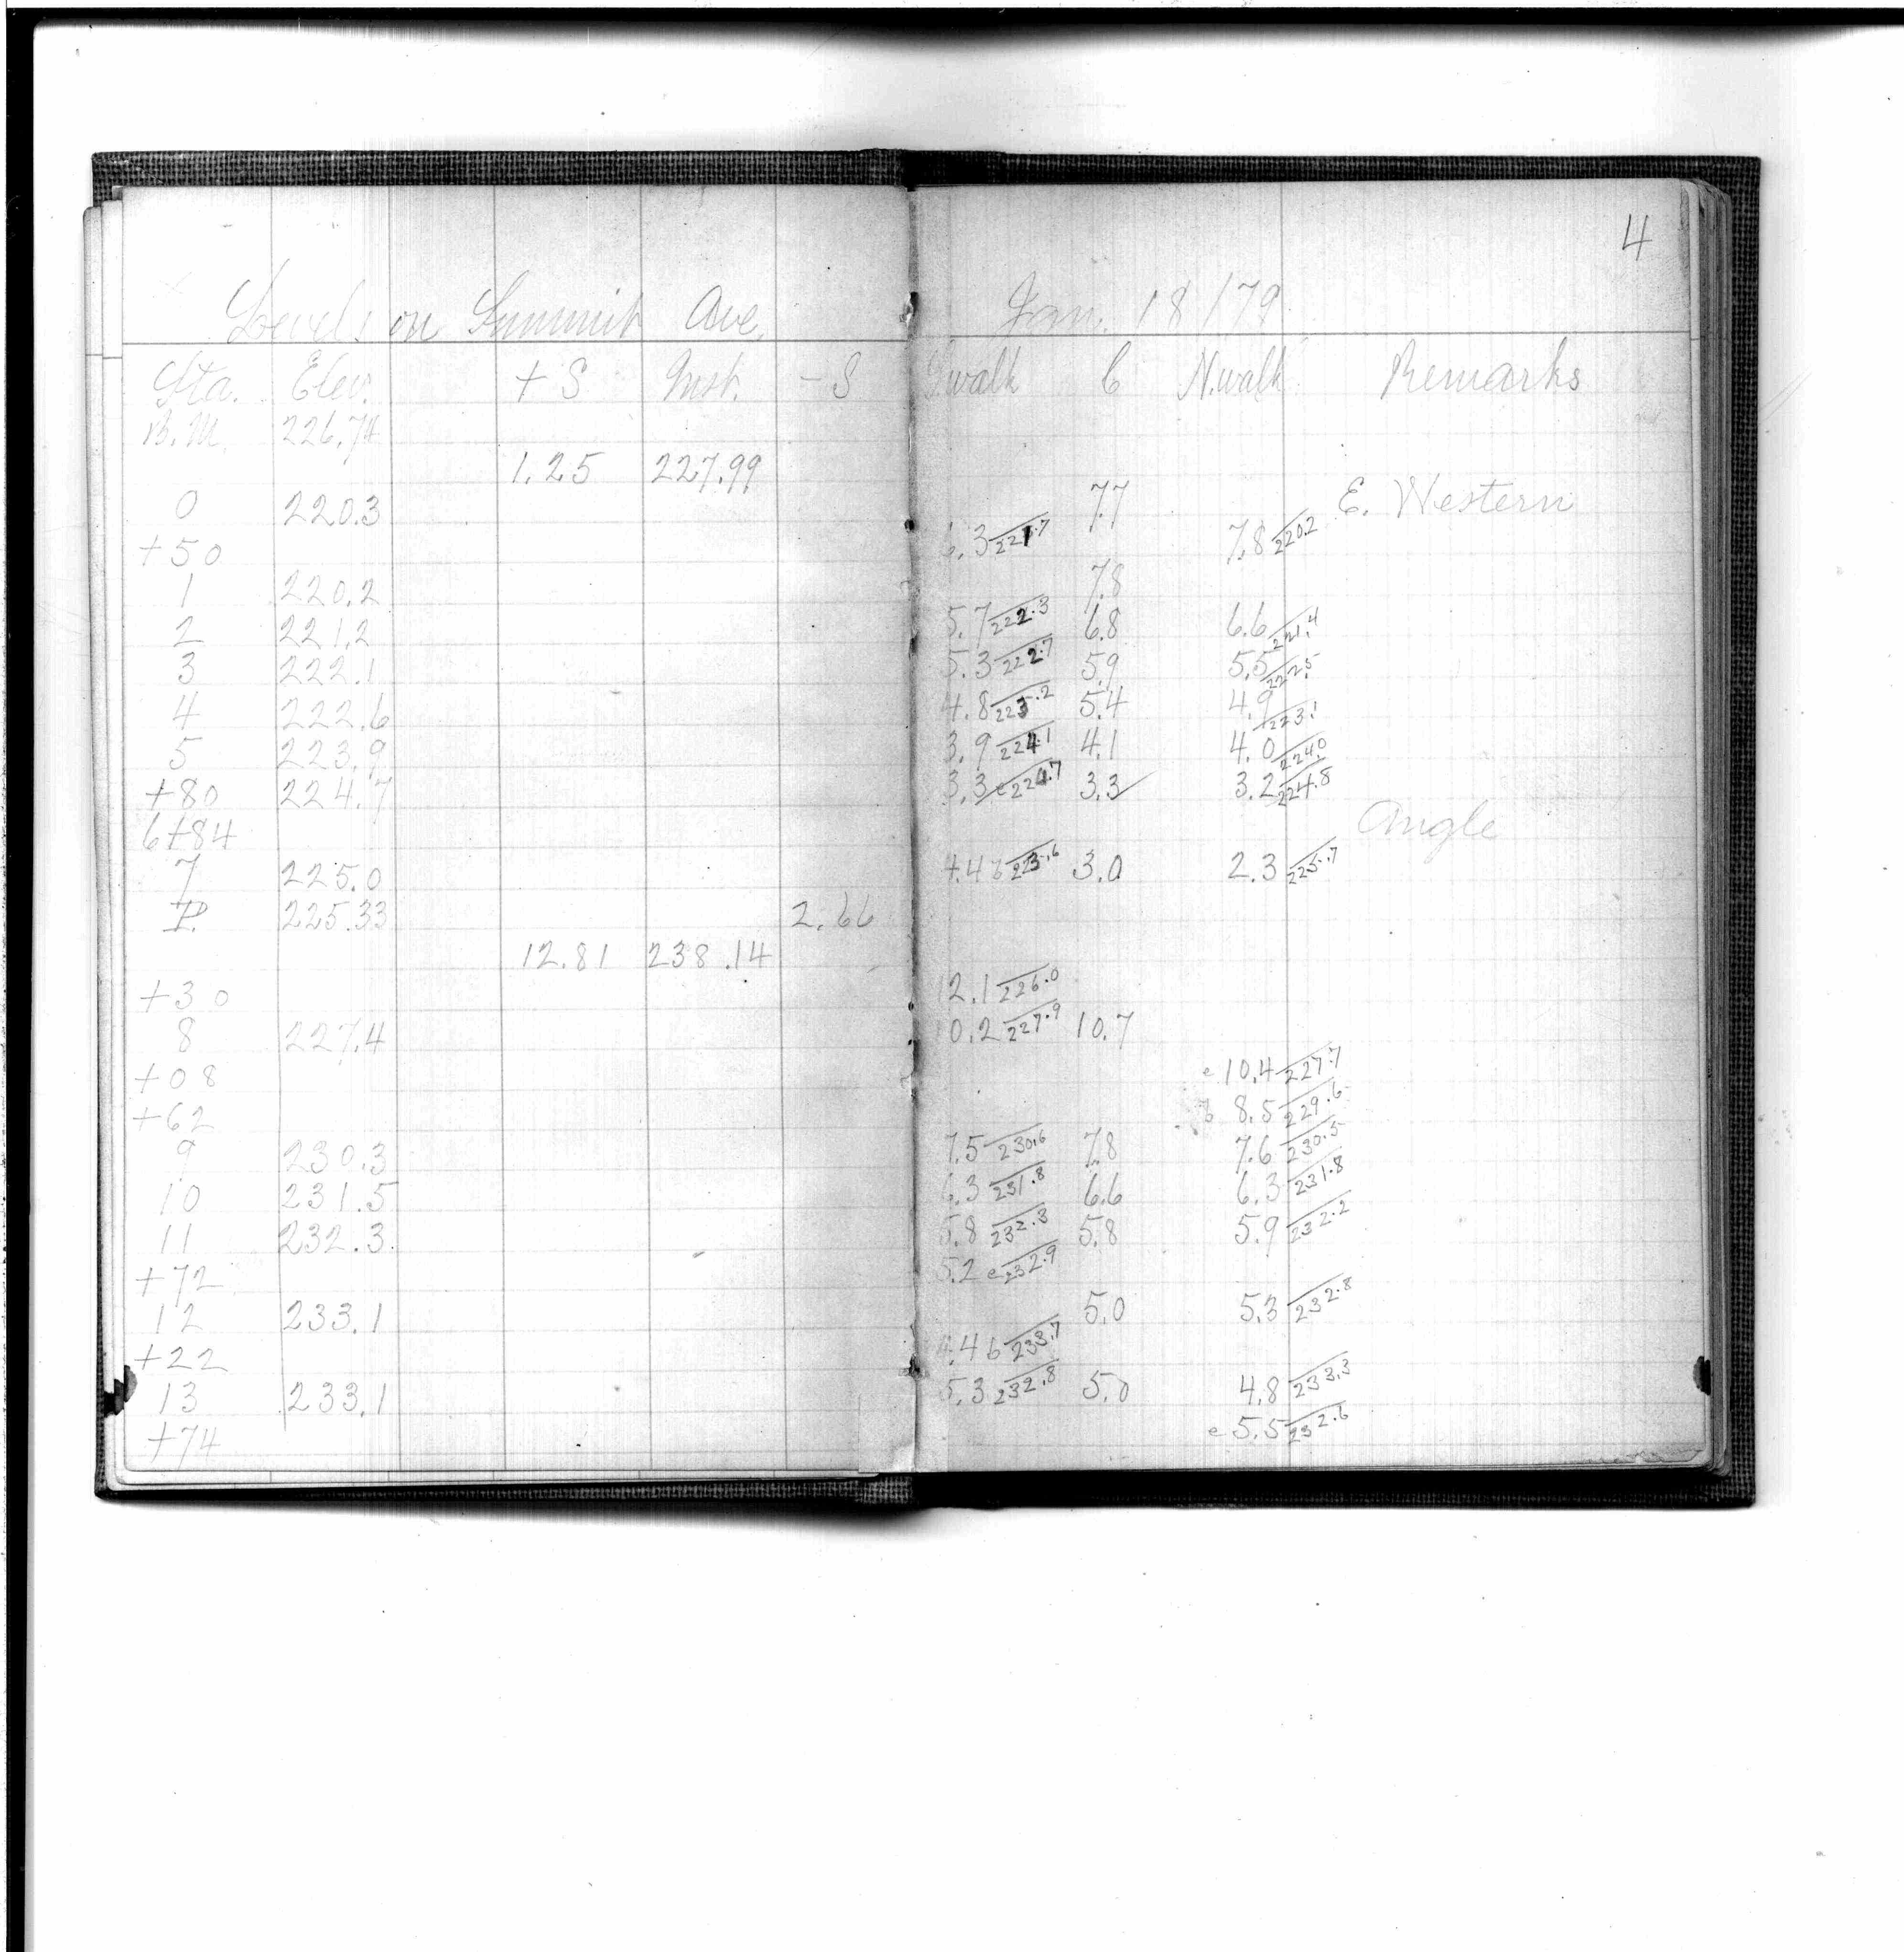 4
Levels on Summit Ave. Jan. 18/79
Sta. Elev. + S Inst. - S S.walk C N.walk Remarks
B.M. 226.74
1.25 227.99
0 220.3 7.7 E. Western
+50 6.3 221.7 7.8 220.2
1 220.2 7.8
2 221.2 5.7 222.3 6.8 6.6 221.4
3 222.1 5.3 222.7 5.9 5.5 222.5
4 222.6 4.8 223.2 5.4 4.9 223.1
5 223.9 3.9 224.1 4.1 4.0 224.0
+80 224.7 3.3 e 224.7 3.3 3.2 224.8
6+84 Angle
7 225.0 4.4 b 223.6 3.0 2.3 225.7
T.P. 225.33 2.66
12.81 238.14
+30 12.1 226.0
8 227.4 10.2 227.9 10.7
+08 e 10.4 227.7
+62 b 8.5 229.6
9 230.3 7.5 230.6 7.8 7.6 230.5
10 231.5 6.3 231.8 6.6 6.3 231.8
11 232.3 5.8 232.3 5.8 5.9 232.2
+72 5.2 e 232.9
12 233.1 5.0 5.3 232.8
+22 4.4 b 233.7
13 233.1 5.3 232.8 5.0 4.8 233.3
+74 e 5.5 232.6